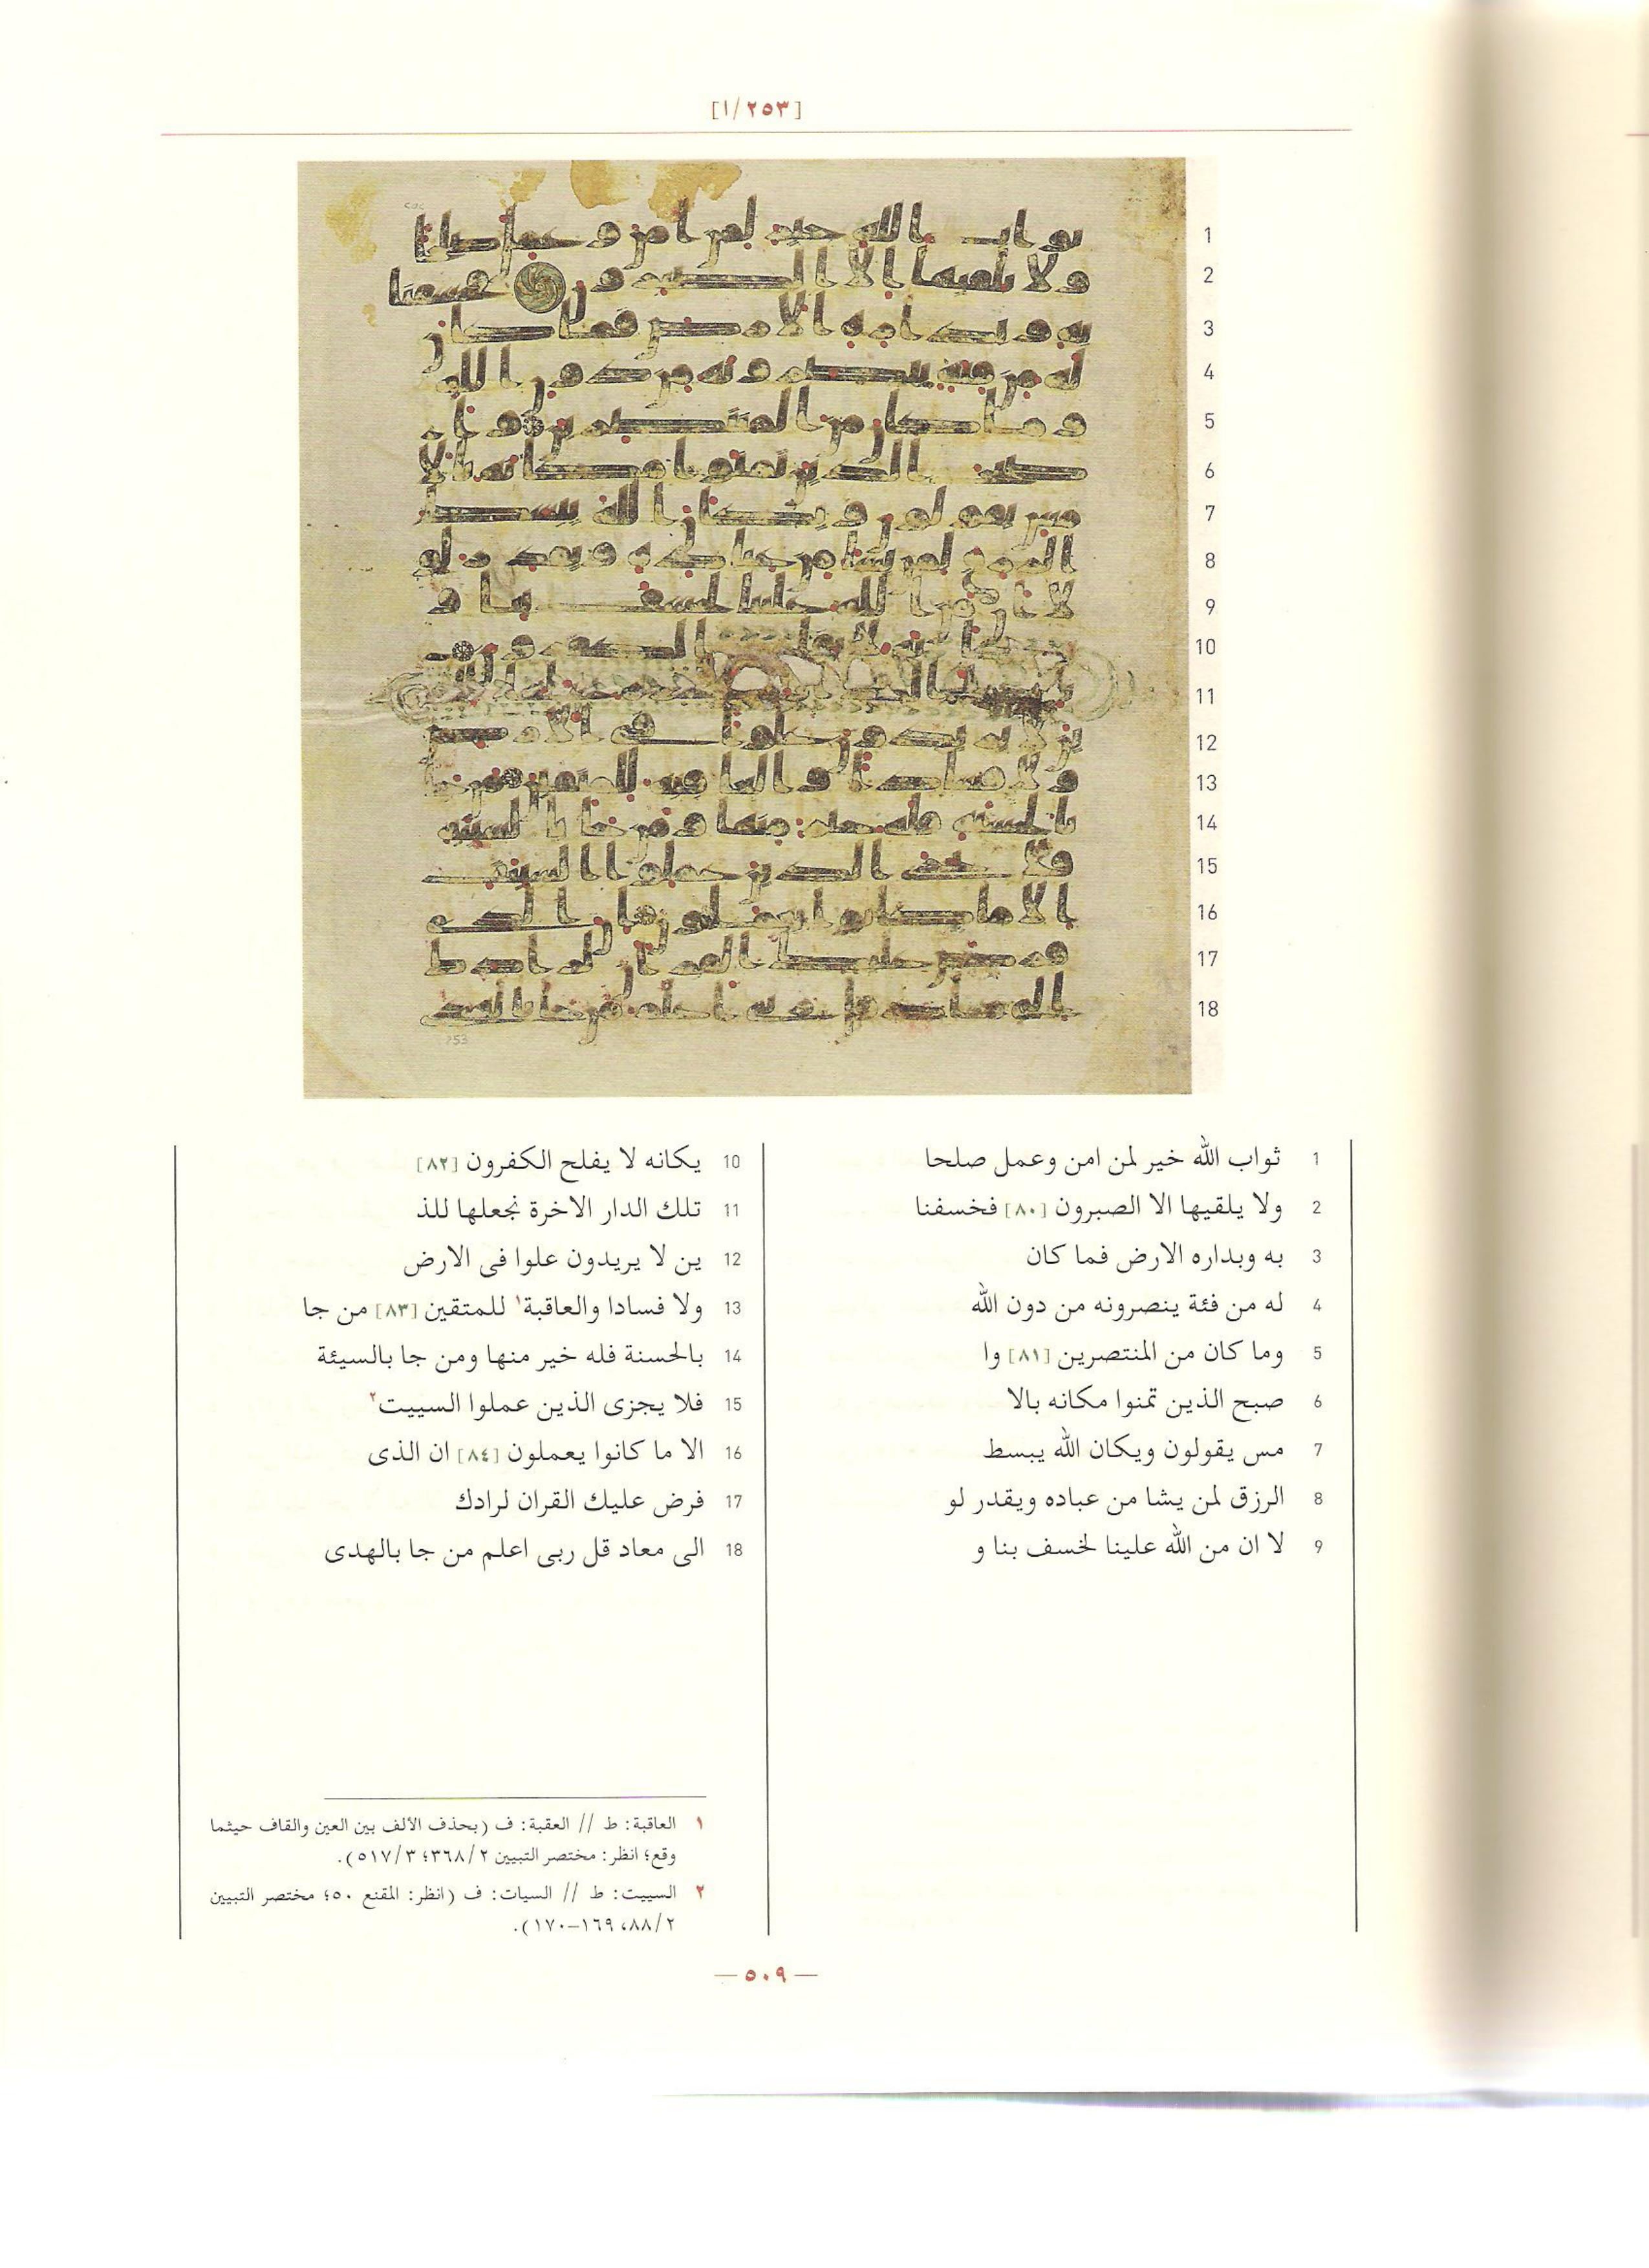 [٢٥٣/ا]
1
2
3
4
5
6
7
8
9
10
11
12
13
14
15
16
17
18
253
1 ثواب الله خير لمن امن وعمل صلحا
2 ولا يلقيها الا الصبرون [٨٠] فخسفنا
3 به وبداره الارض فما كان
4 له من فئة ينصرونه من دون الله
5 وما كان من المنتصرين [٨١] وا
6 صبح الذين تمنوا مكانه بالا
7 مس يقولون ويكان الله يبسط
8 الرزق لمن يشا من عباده ويقدر لو
9 لا ان من الله علينا لخسف بنا و
10 يكانه لا يفلح الكفرون [٨٢]
11 تلك الدار الاخرة نجعلها للذ
12 ين لا يريدون علوا فى الارض
13 ولا فسادا والعاقبة١ للمتقين [٨٣] من جا
14 بالحسنة فله خير منها ومن جا بالسيئة
15 فلا يجزى الذين عملوا السييت٢
16 الا ما كانوا يعملون [٨٤] ان الذى
17 فرض عليك القران لرادك
18 الى معاد قل ربى اعلم من جا بالهدى
١ العاقبة: ط // العقبة: ف (بحذف الألف بين العين والقاف حيثما
وقع؛ انظر: مختصر التبيين ٣٦٨/٢؛ ٥١٧/٣).
٢ السييت: ط // السيات: ف (انظر: المقنع ٥٠؛ مختصر التبيين
٨٨/٢، ١٦٩–١٧٠).
— ٥٠٩ —